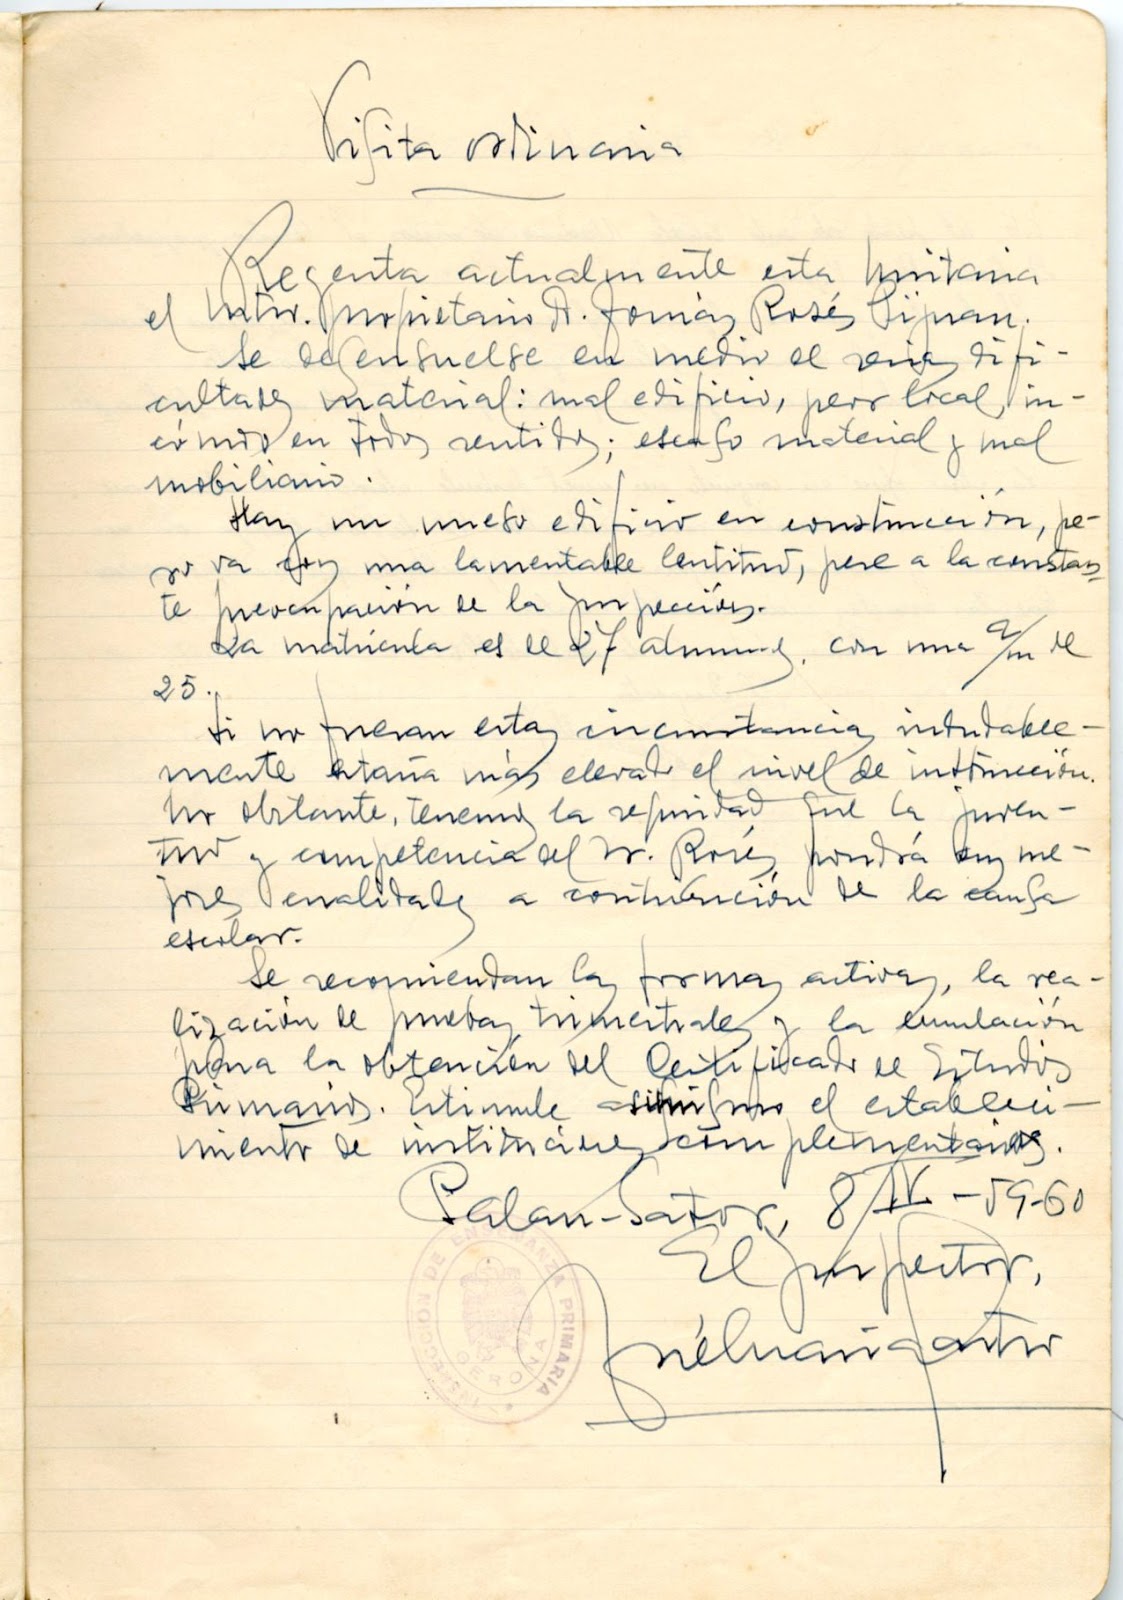 Visita ordinaria
Regenta actualmente esta Unitaria
el Mtro. propietario D. Tomás Rosés
Se desenvuelve en medio de serias difi-
cultades material: mal edificio, peor local, in-
cómodo en todos sentidos; escaso material y mal
mobiliario.
Hay un nuevo edificio en construcción, pe-
ro va con una lamentable lentitud, pese a la constan-
te preocupación de la Inspección.
La matrícula es de 27 alumnos, con una a/m de
25.
Si no fueran estas circunstancias indudable-
mente estaría más elevado el nivel de instrucción.
No obstante, tenemos la seguridad que la juven-
tud y competencia del Sr. Rosés pondrá sus me-
jores cualidades a contribución de la causa
escolar.
Se recomiendan las formas activas, la rea-
lización de pruebas trimestrales y la emulación
para la obtención del Certificado de Estudios
Primarios. Estimule asimismo el estableci-
miento de instituciones complementarias.
Palau-Sator, 8/IV-59-60
El Inspector,
INSPECCIÓN DE ENSEÑANZA PRIMARIA
GERONA